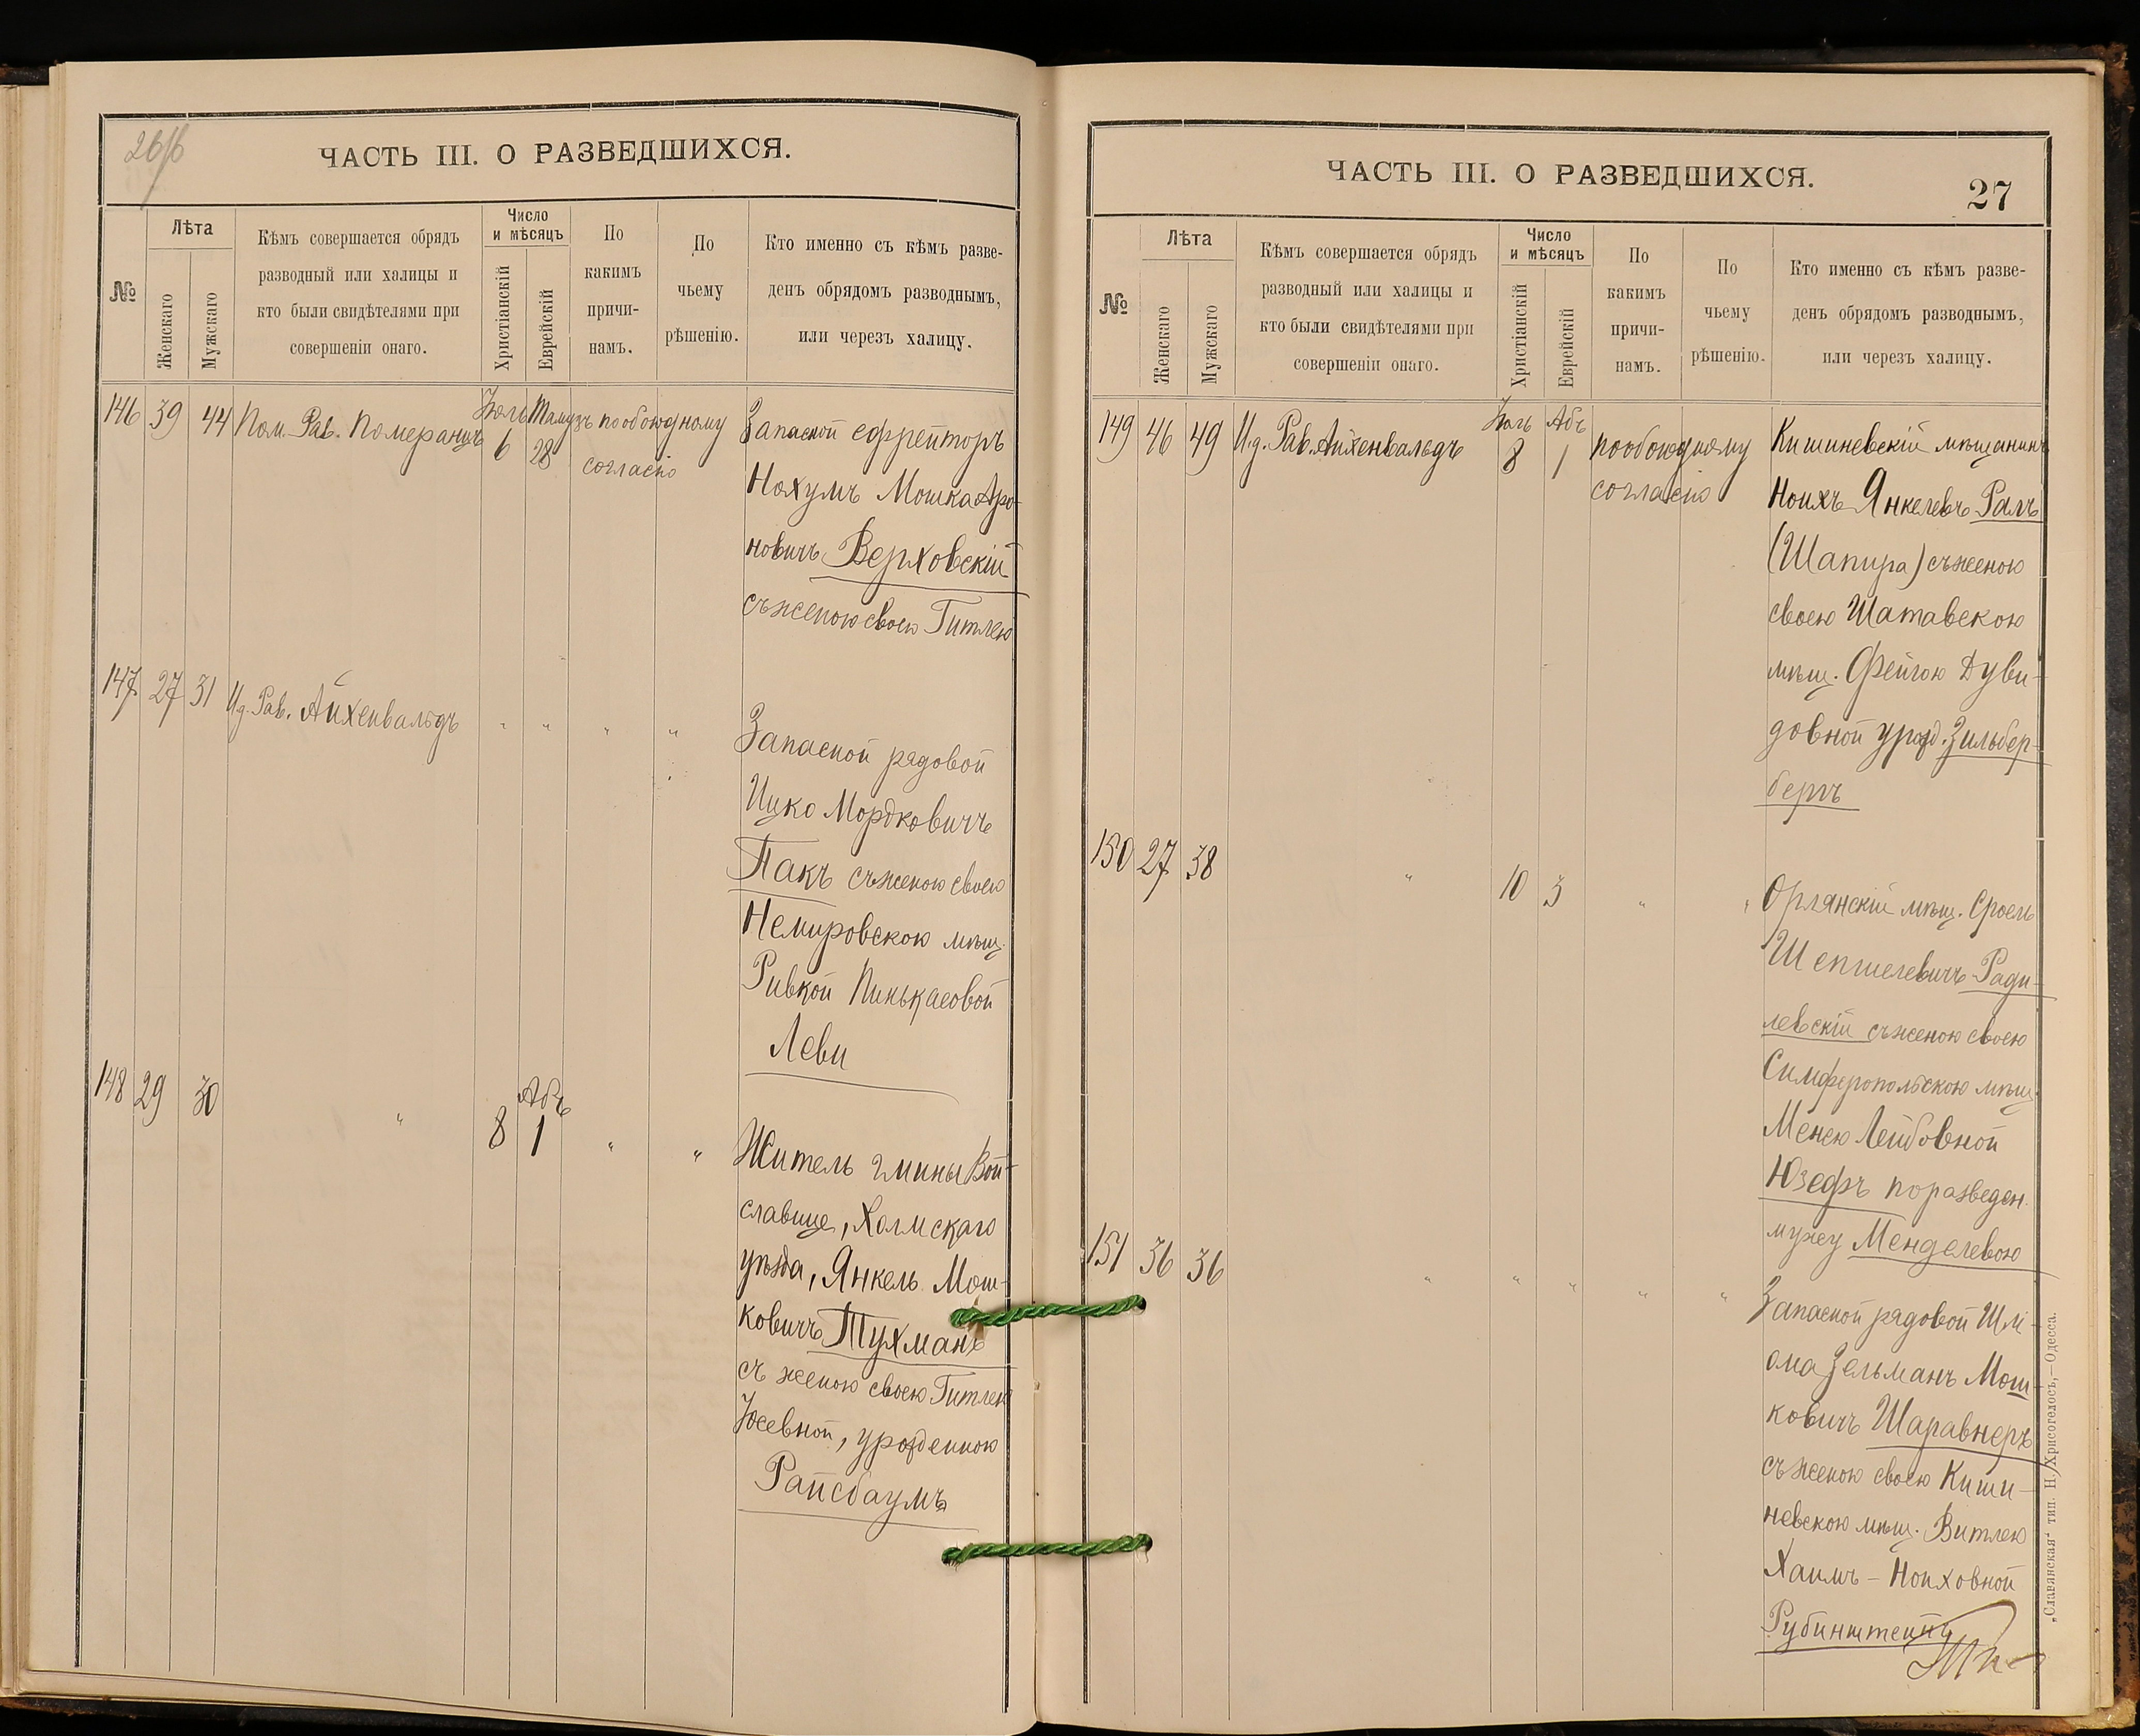 26/б
ЧАСТЬ III. О РАЗВЕДШИХСЯ.
№
Лѣта
Женскаго
Мужскаго
Кѣмъ совершается обрядъ
разводный или халицы и
кто были свидѣтелями при
совершеніи онаго.
Число
и мѣсяцъ
Христіанскій
Еврейскій
По
какимъ
причи-
намъ.
По
чьему
рѣшенію.
Кто именно съ кѣмъ разве-
денъ обрядомъ разводнымъ,
или черезъ халицу.
146 39 44 Пом. Рав. Померанцъ Іюль 6 Тамузъ 28 по обоюдному
согласію
Запасной ефрейторъ
Нахумъ Мошка Аро-
новичъ Верховскій
съ женою своею Гитлею
147 27 31 Ид. Рав. Айхенвальдъ " " " "
Запасной рядовой
Ицко Мордковичъ
Пакъ съ женою своею
Немировскою мѣщ.
Ривкой Пинькасовой
Леви
148 29 30 " 8 Абъ 1 " "
Житель гмины Вой-
славице, Холмскаго
уѣзда, Янкель Мош-
ковичъ Тухманъ
съ женою своею Гитлею
Іосевной, урожденною
Рапсбаумъ
ЧАСТЬ III. О РАЗВЕДШИХСЯ.
27
№
Лѣта
Женскаго
Мужскаго
Кѣмъ совершается обрядъ
разводный или халицы и
кто были свидѣтелями при
совершеніи онаго.
Число
и мѣсяцъ
Христіанскій
Еврейскій
По
какимъ
причи-
намъ.
По
чьему
рѣшенію.
Кто именно съ кѣмъ разве-
денъ обрядомъ разводнымъ,
или черезъ халицу.
149 46 49 Ид. Рав. Айхенвальдъ Іюль 8 Абъ 1 по обоюдному
согласію
Кишиневскій мѣщанинъ
Ноихъ Янкелевъ Ралъ
(Шапира) съ женою
своею Шатавскою
мѣщ. Фейгою Дуви-
довной урожд. Зильбер-
бергъ
150 27 38 " 10 3 " "
Орлянскій мѣщ. Сроель
Шепшелевичъ Ради-
левскій съ женою своею
Симферопольскою мѣщ.
Менею Лейбовной
Юзефъ по разведен.
мужу Менделевою
151 36 36 " " " " "
Запасной рядовой Шлі-
ома Зельманъ Мош-
ковичъ Шаравнеръ
съ женою своею Киши-
невскою мѣщ. Витлею
Хаимъ-Ноиховной
Рубинштейнъ
„Славянская" тип. Н. Хрисогелосъ,—Одесса.